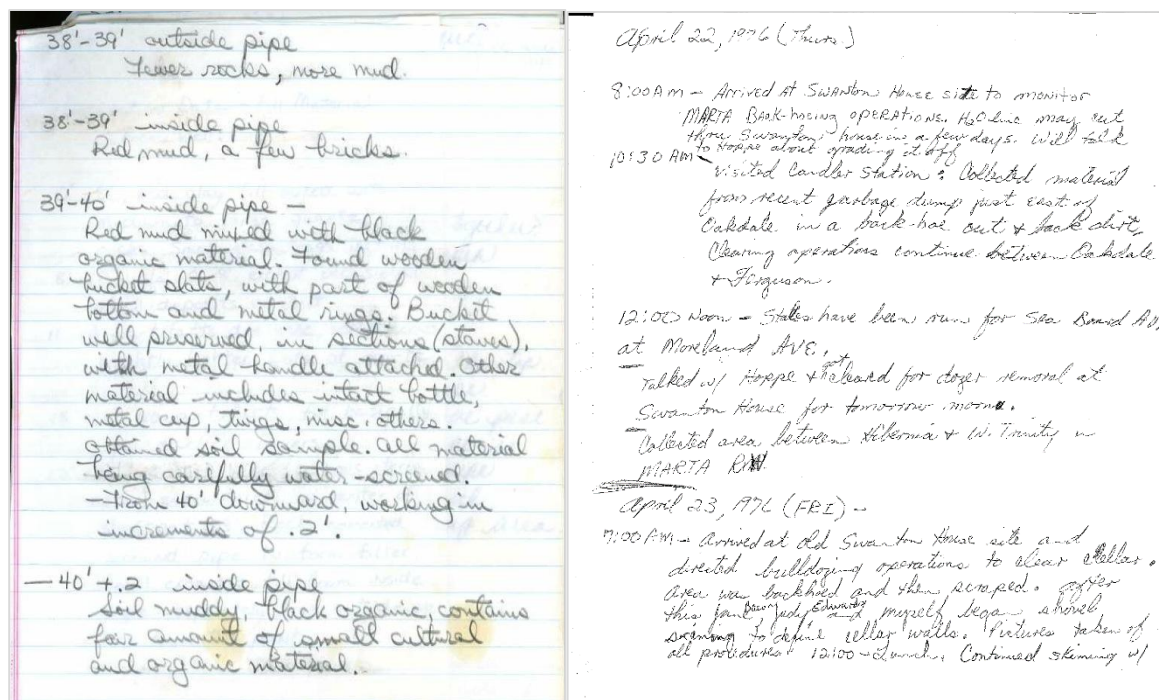 38'-39' outside pipe
Fewer rocks, more mud.
38'-39' inside pipe
Red mud, a few bricks.
39'-40' inside pipe -
Red mud mixed with black
organic material. Found wooden
bucket slats, with part of wooden
bottom and metal rings. Bucket
well preserved, in sections (staves),
with metal handle attached. Other
material includes intact bottle,
metal cup, twigs, misc. others.
Obtained soil sample. All material
being carefully water-screened.
- From 40' downward, working in
increments of .2'.
- 40' + .2 inside pipe
Soil muddy, black organic, contains
fair amount of small cultural
and organic material.
April 22, 1976 (Thurs.)
8:00 AM - Arrived At Swanton House site to monitor
MARTA Back-hoeing operations. H2O line may cut
thru Swanton house in a few days. Will talk
to Hoppe about grading it off
10:30 AM -
Visited Candler Station: Collected material
from recent garbage dump just east of
Oakdale in a back-hoe cut & back dirt.
Clearing operations continue between Oakdale
& Ferguson.
12:00 Noon - Stakes have been run for Sea Board
at Moreland AVE.
Talked w/ Hoppe & got cleard for dozer removal at
Swanton House for tomorrow morn.
Collected area between Hibernia & W. Trinity in
MARTA RW.
April 23, 1976 (FRI) -
7:00 AM - Arrived at old Swanton House site and
directed bulldozing operations to clear cellar.
Area was backhoed and then scraped. After
this Jane Judy Edwards and myself began shovel
skimming to define cellar walls. Pictures taken of
all procedures. 12:00 - Lunch. Continued skimming w/